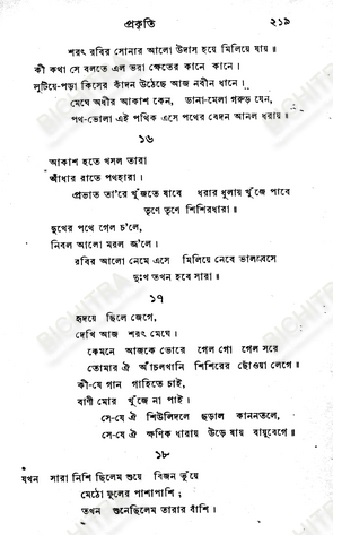 প্রকৃতি ২১৯
শরৎ রবির সোনার আলো উদাস হয়ে মিলিয়ে যায়॥
কী কথা সে বলতে এল ভরা ক্ষেতের কানে কানে।
লুটিয়ে-পড়া কিসের কাঁদন উঠেছে আজ নবীন ধানে।
মেঘে অধীর আকাশ কেন, ডানা-মেলা গরুড় যেন,
পথ-ভোলা এই পথিক এসে পথের বেদন আনিল ধরায়॥
১৬
আকাশ হতে খসল তারা
আঁধার রাতে পথহারা।
প্রভাত তা'রে খুঁজতে যাবে ধরার ধুলায় খুঁজে পাবে
তৃণে তৃণে শিশিরধারা।
দুখের পথে গেল চ'লে,
নিবল আলো মরল জ্ব'লে।
রবির আলো নেমে এসে মিলিয়ে নেবে ভালবেসে
দুঃখ তখন হবে সারা॥
১৭
হৃদয়ে ছিলে জেগে,
দেখি আজ শরৎ মেঘে।
কেমনে আজকে ভোরে গেল গো গেল সরে
তোমার ঐ আঁচলখানি শিশিরের ছোঁওয়া লেগে॥
কী-যে গান গাহিতে চাই,
বাণী মোর খুঁজে না পাই।
সে-যে ঐ শিউলিদলে ছড়াল কাননতলে,
সে-যে ঐ ক্ষণিক ধারায় উড়ে যায় বায়ুবেগে॥
১৮
যখন সারা নিশি ছিলেম শুয়ে বিজন ভুঁয়ে
মেঠো ফুলের পাশাপাশি;
তখন শুনেছিলেম তারার বাঁশি।
BICHITRA